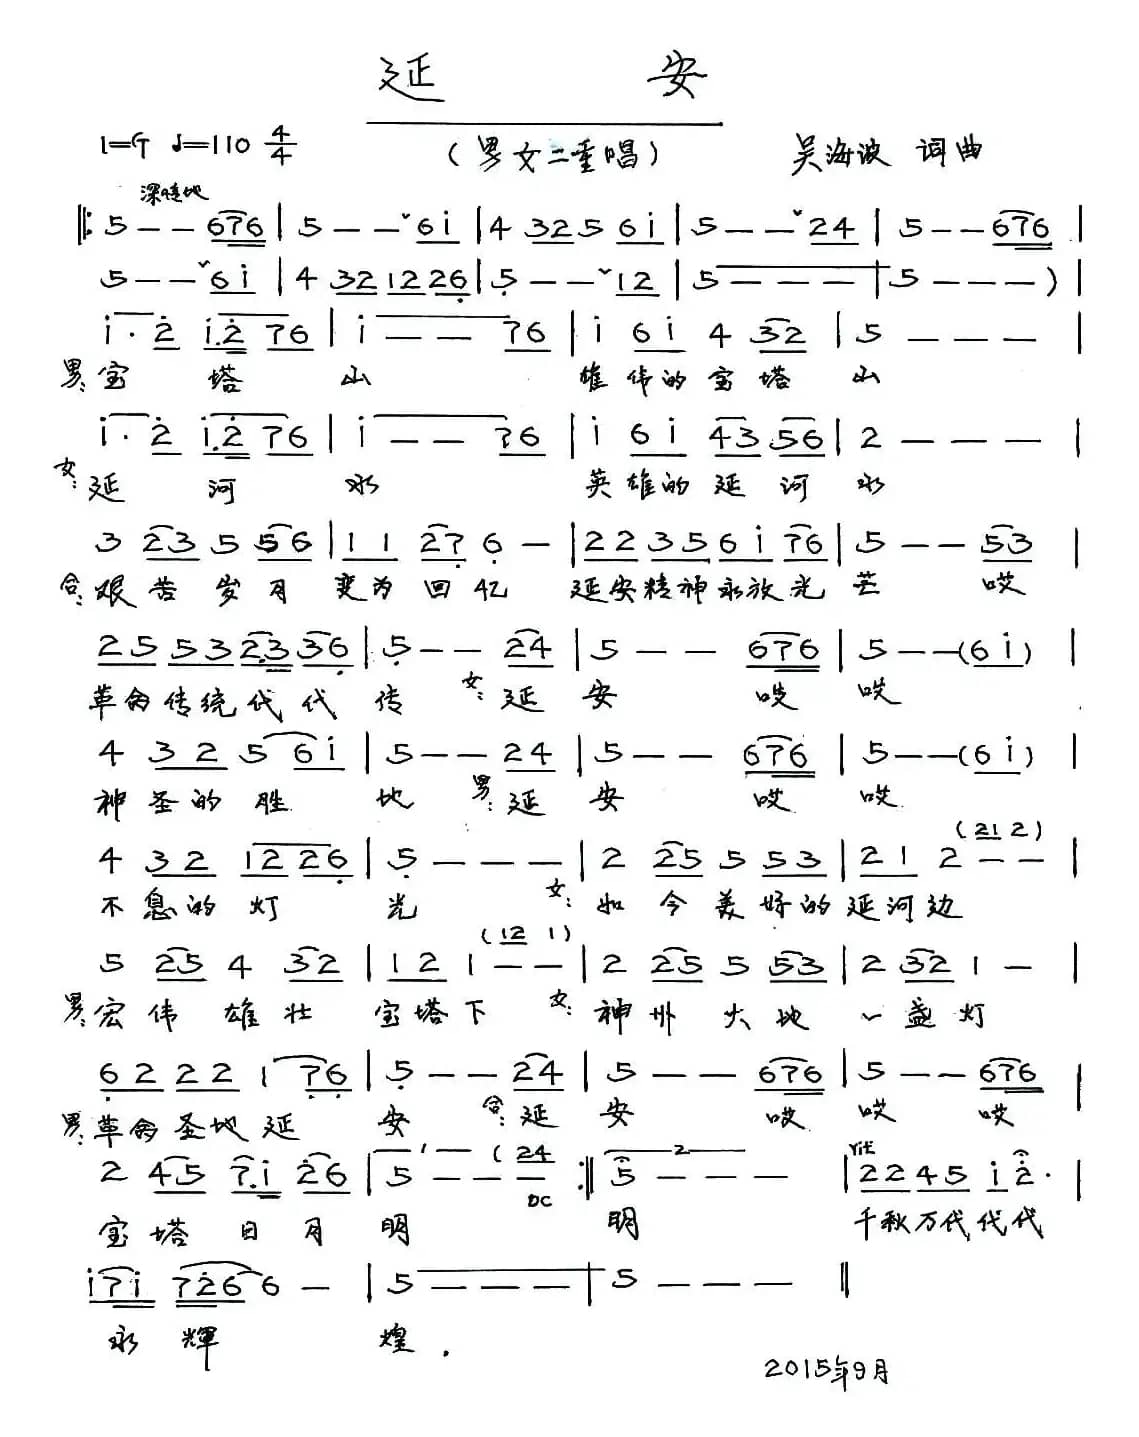 延 安
1=G ♩=110 4/4 （男女二重唱） 吴海波 词曲
深情地
‖: 5 - - 676 | 5 - - ˇ 6i | 4 325 6i | 5 - - ˇ 24 | 5 - - 676 |
5 - - ˇ 6i | 4 32 12 26 | 5 - - ˇ 12 | 5 - - - | 5 - - - ) |
i· 2 i·2 76 | i - - 76 | i 6i 4 32 | 5 - - - |
男: 宝 塔 山 雄伟的宝塔 山
i· 2 i·2 76 | i - - 76 | i 6i 43 56 | 2 - - - |
女: 延 河 水 英雄的延河 水
3 23 5 56 | 11 27 6 - | 22 35 6i 76 | 5 - - 53 |
合: 艰苦岁月 变为回忆 延安精神永放光 芒 哎
25 53 2·3 36 | 5 - - 24 | 5 - - 676 | 5 - - (6i) |
革命传统代代 传 女: 延 安 哎 哎
4 32 5 6i | 5 - - 24 | 5 - - 676 | 5 - - (6i) |
神圣的胜 地 男: 延 安 哎 哎
(21 2)
4 32 12 26 | 5 - - - | 2 25 5 53 | 21 2 - - |
不息的灯 光 女: 如今美好的延河边
(12 1)
5 25 4 32 | 12 1 - - | 2 25 5 53 | 2 32 1 - |
男: 宏伟雄壮 宝塔下 女: 神州大地 一盏灯
62 22 1 76 | 5 - - 24 | 5 - - 676 | 5 - - 676 |
男: 革命圣地延 安 合: 延 安 哎 哎 哎
2 45 7·i 26 | 1. 5 - - (24 - DC :‖ 2. 5 - - - | rit 22 45 i 2· |
宝塔日月 明 明 千秋万代代代
i7i 726 6 - | 5 - - - | 5 - - - ‖
永辉 煌.
2015年9月